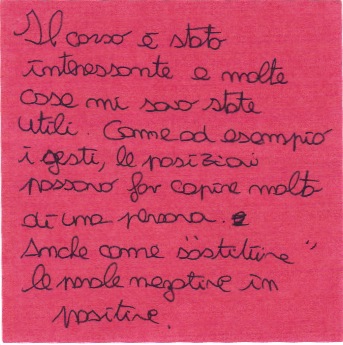 Il corso è stato
interessante e molte
cose mi sono state
utili. Come ad esempio
i gesti, le posizioni
possono far capire molto
di una persona.
Anche come "sostituire"
le parole negative in
positive.